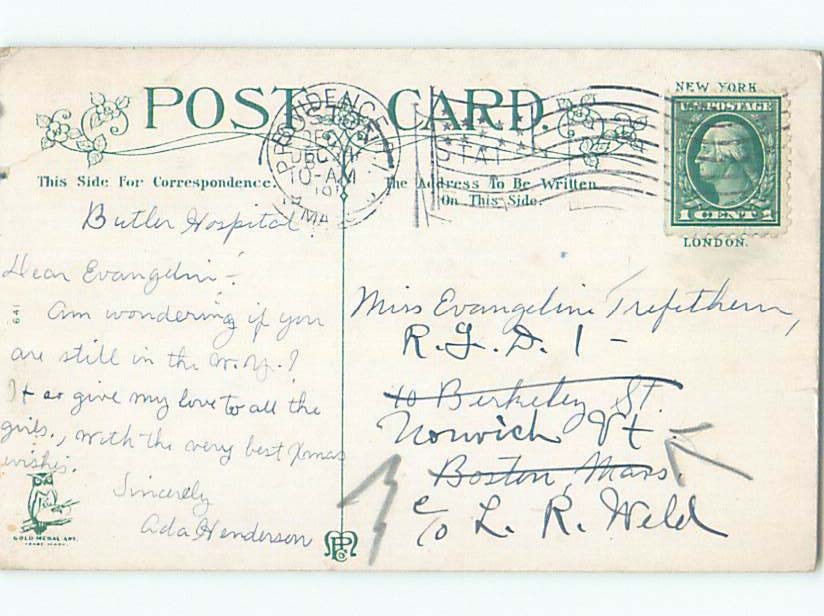 POST CARD.
NEW YORK
U.S. POSTAGE
1 CENT 1
LONDON.
PROVIDENCE, R.I.
DEC
10-AM
This Side For Correspondence.
The Address To Be Written
On This Side.
Butler Hospital
Dear Evangelin-
641
Am wondering if you
are still in the W.Y.?
If so give my love to all the
girls., with the very best Xmas
wishes.
Sincerely
Ada Henderson
GOLD MEDAL ART.
TRADE MARK.
Miss Evangeline Trefethern,
R.F.D. 1 -
10 Berkeley St.
Norwich Vt
Boston, Mass.
c/o L. R. Weld